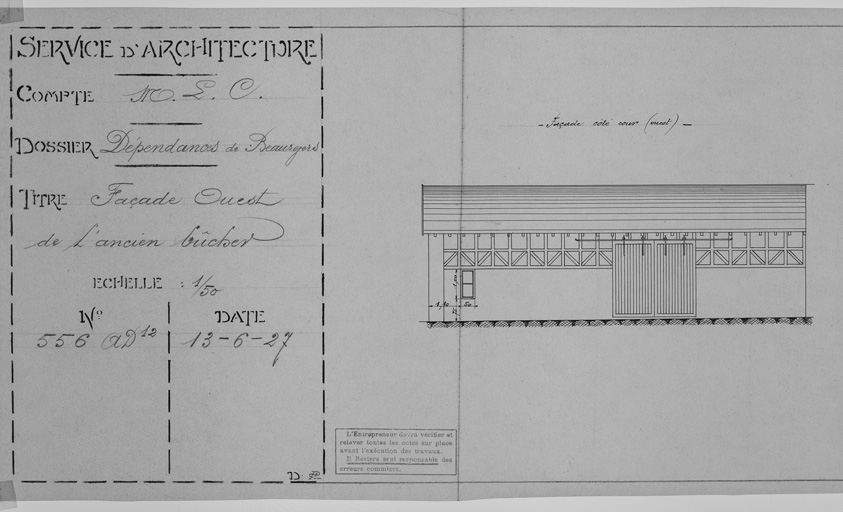 SERVICE D'ARCHITECTURE
COMPTE M. L. C.
DOSSIER Dépendances de Beauregard
TITRE Façade Ouest
de l'ancien bûcher
ECHELLE : 1/50
No DATE
556 AD 12 13-6-27
Façade côté cour (ouest)
1,10 50
L'Entrepreneur devra vérifier et
relever toutes les cotes sur place
avant l'exécution des travaux.
Il Restera seul responsable des
erreurs commises.